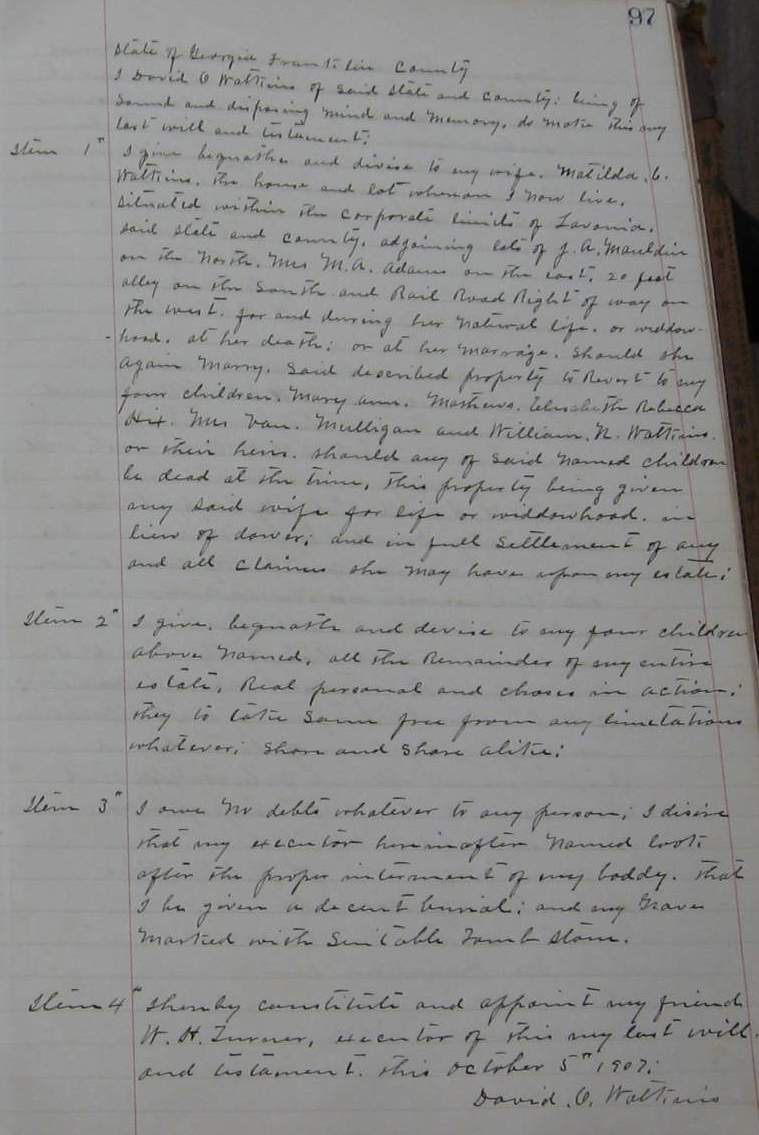 97
State of Georgia Franklin County
I David O Watkins of said State and County; being of
Sound and disposing mind and Memory, do make this my
last will and testament.
Item 1" I give bequathe and divise to my wife. Matilda. C.
Watkins. the house and lot whereon I now live.
Situated within the corporate limits of Lavonia.
said state and county. adjoining lots of J. A. Mauldin
on the North. Mrs M. A. Adams on the east. 20 feet
alley on the South and Rail Road Right of way on
the west. for and during her natural life. or widdow-
hood. at her death; or at her marrage. Should she
again Marry. Said described property to Revert to my
four children. Mary ann. Mathews. Elisabeth Rebecca
Hix. Mrs Van. Mulligan and William. N. Watkins.
or their heirs. should any of said named children
be dead at the time, this property being given
my said wife for life or widdowhood. in
lieu of dower; and in full Settlement of any
and all claims she may have upon my estate;
Item 2" I give, bequathe and devise to my four children
above named, all the Remainder of my entire
estate, Real personal and choses in action;
they to take same free from any limetations
whatever; Share and Share alike;
Item 3" I owe no debts whatever to any person; I disire
that my executor hereinafter named look
after the proper interment of my boddy. that
I be given a decent burial; and my Grave
Marked with Suitable Tomb Stone.
Item 4" I hereby constitute and appoint my friend
W. H. Turner, executor of this my last will
and testament. this October 5" 1907;
David. O. Watkins